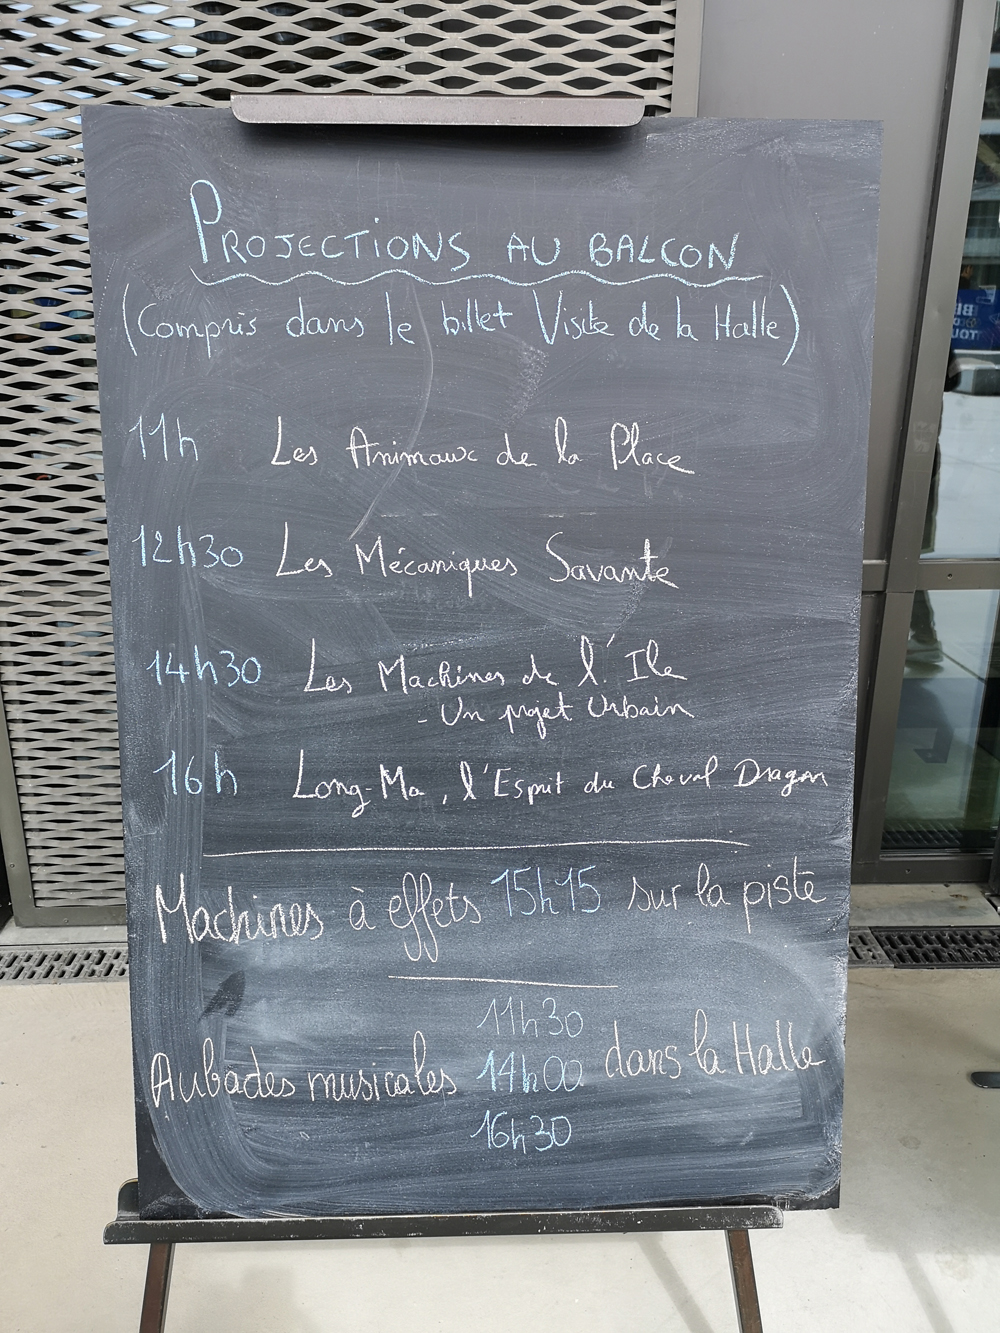 PROJECTIONS AU BALCON
(Compris dans le billet Visite de la Halle)
11h Les Animaux de la Place
12h30 Les Mécaniques Savante
14h30 Les Machines de l'Ile
- Un projet Urbain
16h Long-Ma, l'Esprit du Cheval Dragon
Machines à effets 15h15 sur la piste
11h30
Aubades musicales 14h00 dans la Halle
16h30